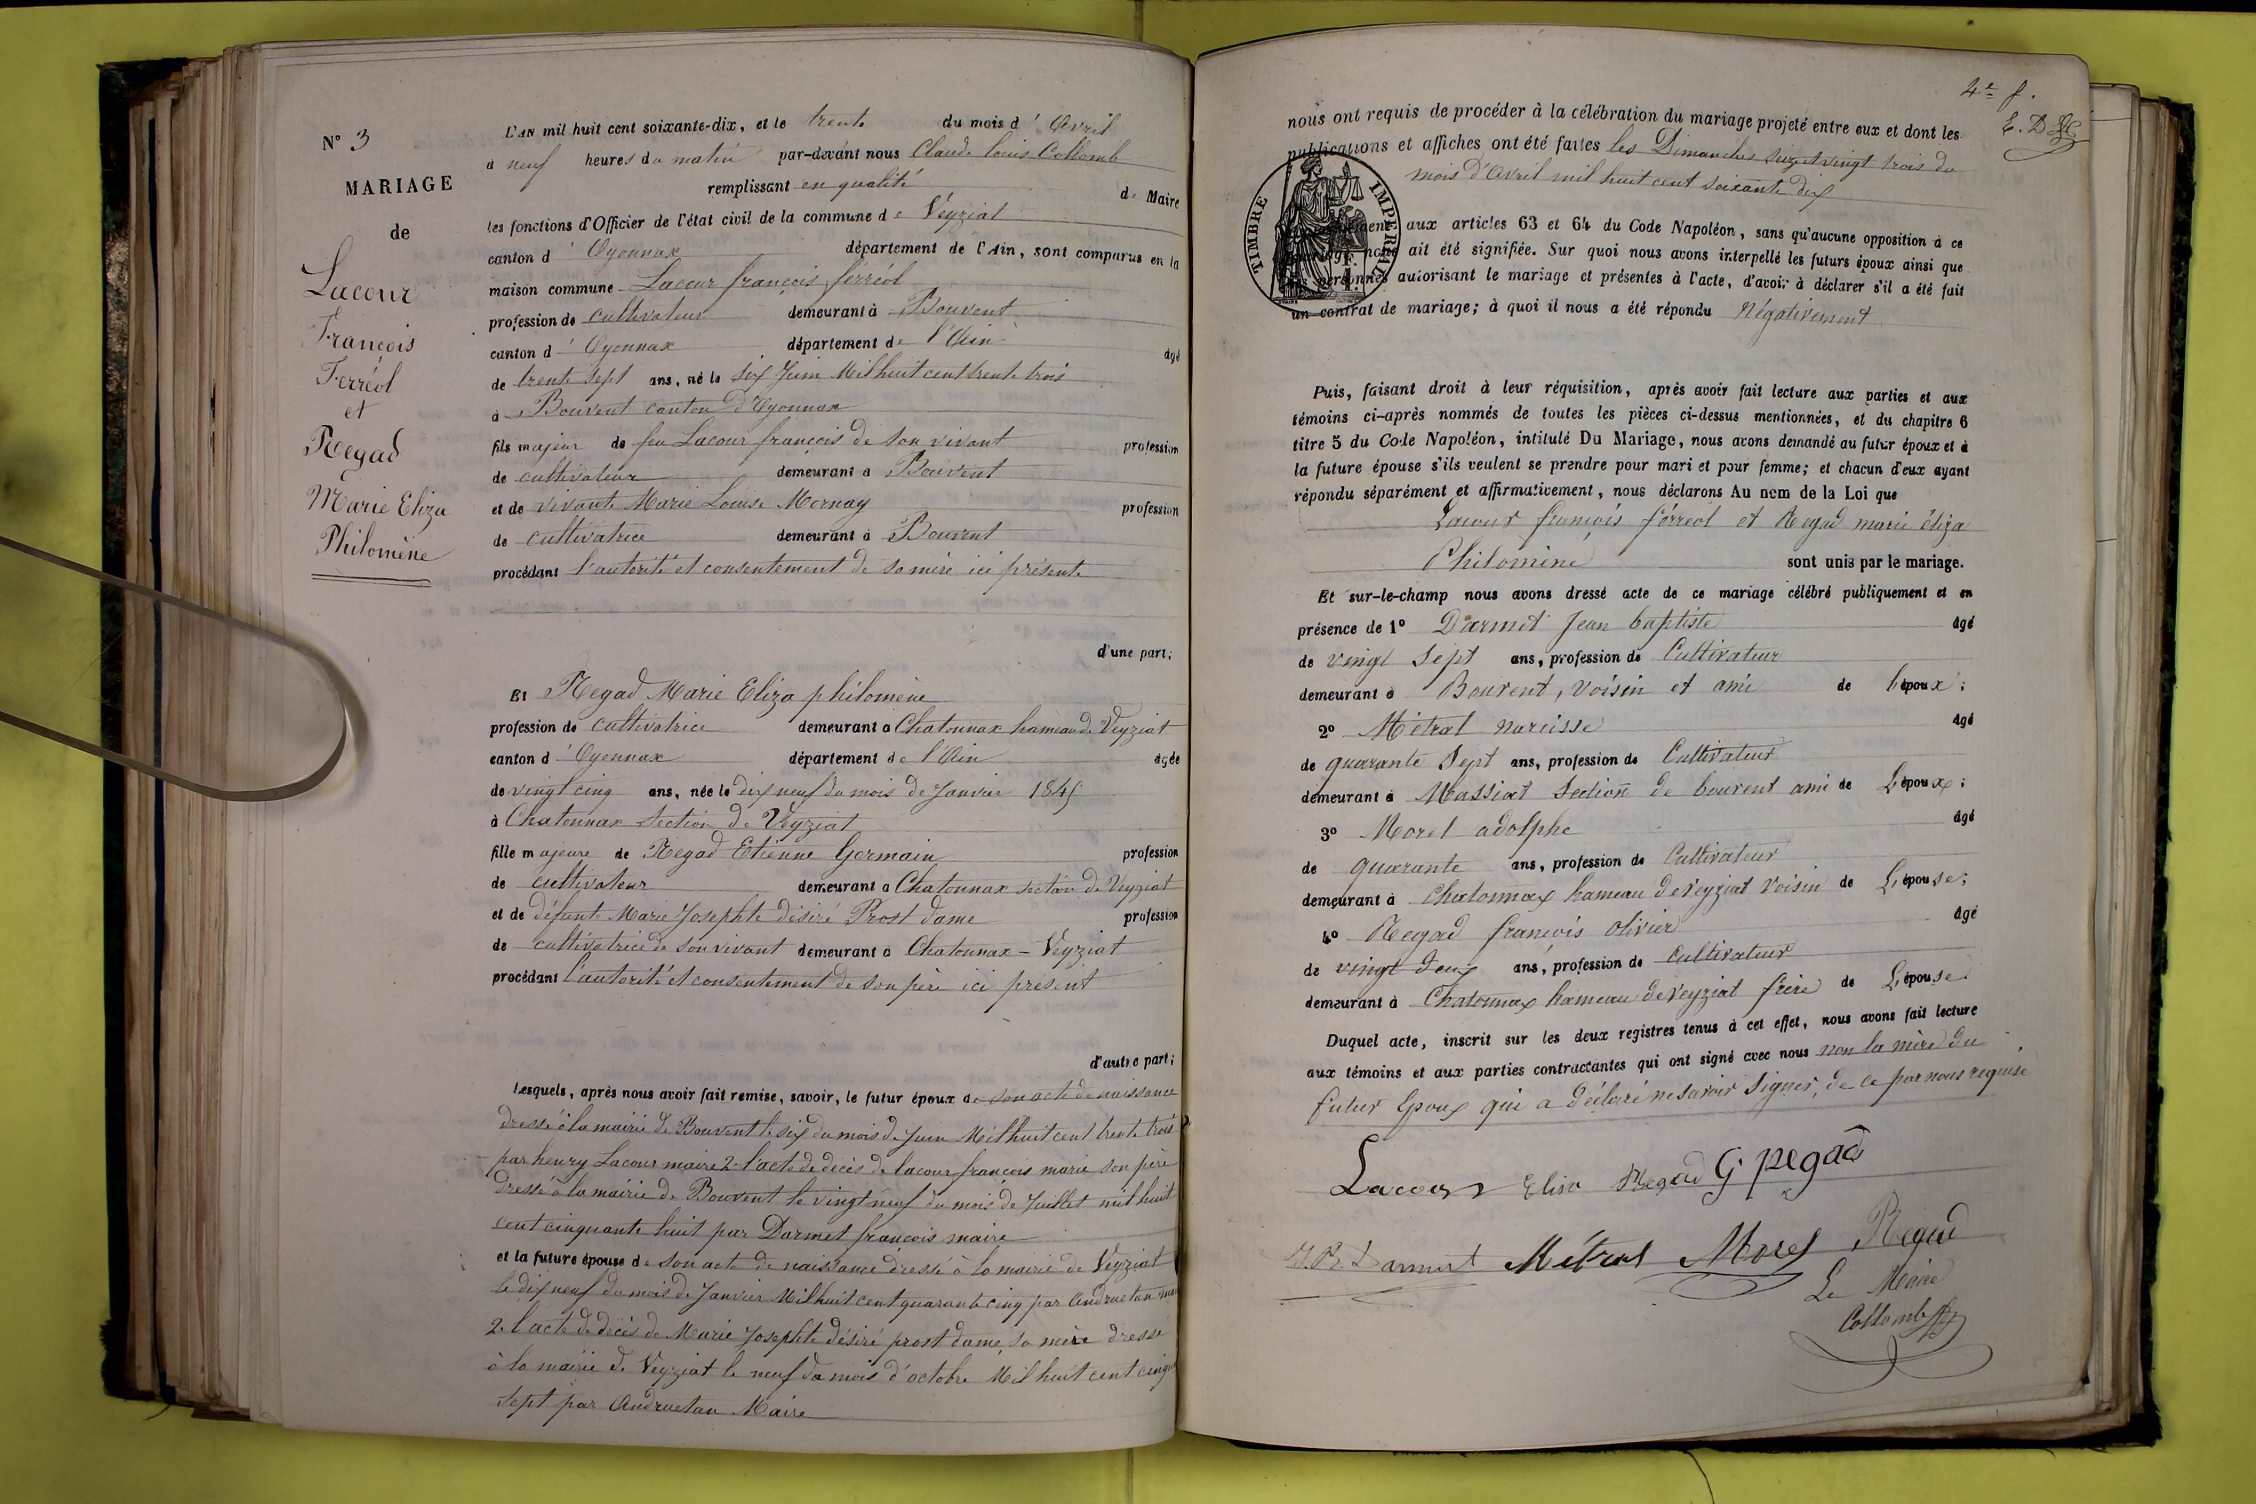 N° 3
MARIAGE
de
Lacour
François
Ferréol
et
Regad
Marie Eliza
Philomène
L'AN mil huit cent soixante-dix, et le trente du mois d'Avril
à neuf heures du matin par-devant nous Claude Louis Collomb
remplissant en qualité de Maire
les fonctions d'Officier de l'état civil de la commune de Veyziat
canton d'Oyonnax département de l'Ain, sont comparus en la
maison commune Lacour françois ferréol
profession de cultivateur demeurant à Bouvent
canton d'Oyonnax département de l'Ain âgé
de trente sept ans, né le six Juin Mil huit cent trente trois
à Bouvent canton d'Oyonnax
fils majeur de feu Lacour françois de son vivant profession
de cultivateur demeurant à Bouvent
et de vivante Marie Louise Mornay profession
de cultivatrice demeurant à Bouvent
procédant l'autorité et consentement de sa mère ici présente
d'une part;
Et Regad Marie Eliza philomène
profession de cultivatrice demeurant à Chatonnax hameau de Veyziat
canton d'Oyonnax département de l'Ain âgée
de vingt cinq ans, née le dix neuf du mois de Janvier 1845
à Chatonnax section de Veyziat
fille majeure de Regad Etienne Germain profession
de cultivateur demeurant à Chatonnax section de Veyziat
et de défunte Marie Josephte désiré Prost dame profession
de cultivatrice de son vivant demeurant à Chatonnax - Veyziat
procédant l'autorité et consentement de son père ici présent
d'autre part;
Lesquels, après nous avoir fait remise, savoir, le futur époux de son acte de naissance
dressé à la mairie de Bouvent le six du mois de Juin Mil huit cent trente trois
par henry Lacour maire 2° l'acte de décès de lacour françois marie son père
dressé à la mairie de Bouvent le vingt neuf du mois de Juillet mil huit
cent cinquante huit par Darmet françois maire
et la future épouse de son acte de naissance dressé à la mairie de Veyziat
le dix neuf du mois de Janvier Mil huit cent quarante cinq par Andruetan
2° l'acte de décès de Marie Josephte désiré prost dame, sa mère dressé
à la mairie de Veyziat le neuf du mois d'octobre Mil huit cent
sept par Andruetan Maire
4e f.
nous ont requis de procéder à la célébration du mariage projeté entre eux et dont les
publications et affiches ont été faites les Dimanches seize et vingt trois du
mois d'Avril mil huit cent soixante dix
TIMBRE IMPERIAL
aux articles 63 et 64 du Code Napoléon, sans qu'aucune opposition à ce
ait été signifiée. Sur quoi nous avons interpellé les futurs époux ainsi que
personnes autorisant le mariage et présentes à l'acte, d'avoir à déclarer s'il a été fait
un contrat de mariage; à quoi il nous a été répondu Négativement
Puis, faisant droit à leur réquisition, après avoir fait lecture aux parties et aux
témoins ci-après nommés de toutes les pièces ci-dessus mentionnées, et du chapitre 6
titre 5 du Code Napoléon, intitulé Du Mariage, nous avons demandé au futur époux et à
la future épouse s'ils veulent se prendre pour mari et pour femme; et chacun d'eux ayant
répondu séparément et affirmativement, nous déclarons Au nom de la Loi que
Lacour françois férreol et Regad marie éliza
Philomène sont unis par le mariage.
Et sur-le-champ nous avons dressé acte de ce mariage célébré publiquement et en
présence de 1° Darmet Jean baptiste âgé
de vingt sept ans, profession de Cultivateur
demeurant à Bouvent, voisin et ami de l'époux;
2° Métral narcisse âgé
de quarante sept ans, profession de Cultivateur
demeurant à Massiat Section de bouvent ami de L'époux;
3° Morel adolphe âgé
de quarante ans, profession de Cultivateur
demeurant à Chatonnax hameau de veyziat voisin de L'épouse;
4° Regad françois olivier âgé
de vingt deux ans, profession de cultivateur
demeurant à Chatonnax hameau de veyziat frère de L'épouse
Duquel acte, inscrit sur les deux registres tenus à cet effet, nous avons fait lecture
aux témoins et aux parties contractantes qui ont signé avec nous non la mère du
futur Epoux qui a déclaré ne savoir signer, de ce par nous requise
Lacour Elisa Regad G Regad
J. B. Darmet Métral Morel Regad
Le Maire
Collomb